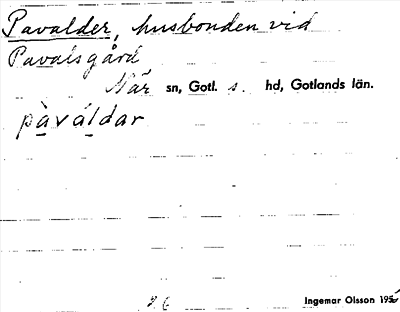 Pavalder, husbonden vid
Pavalsgård
När sn, Gotl. s. hd, Gotlands län.
pàváldar
Ingemar Olsson 195